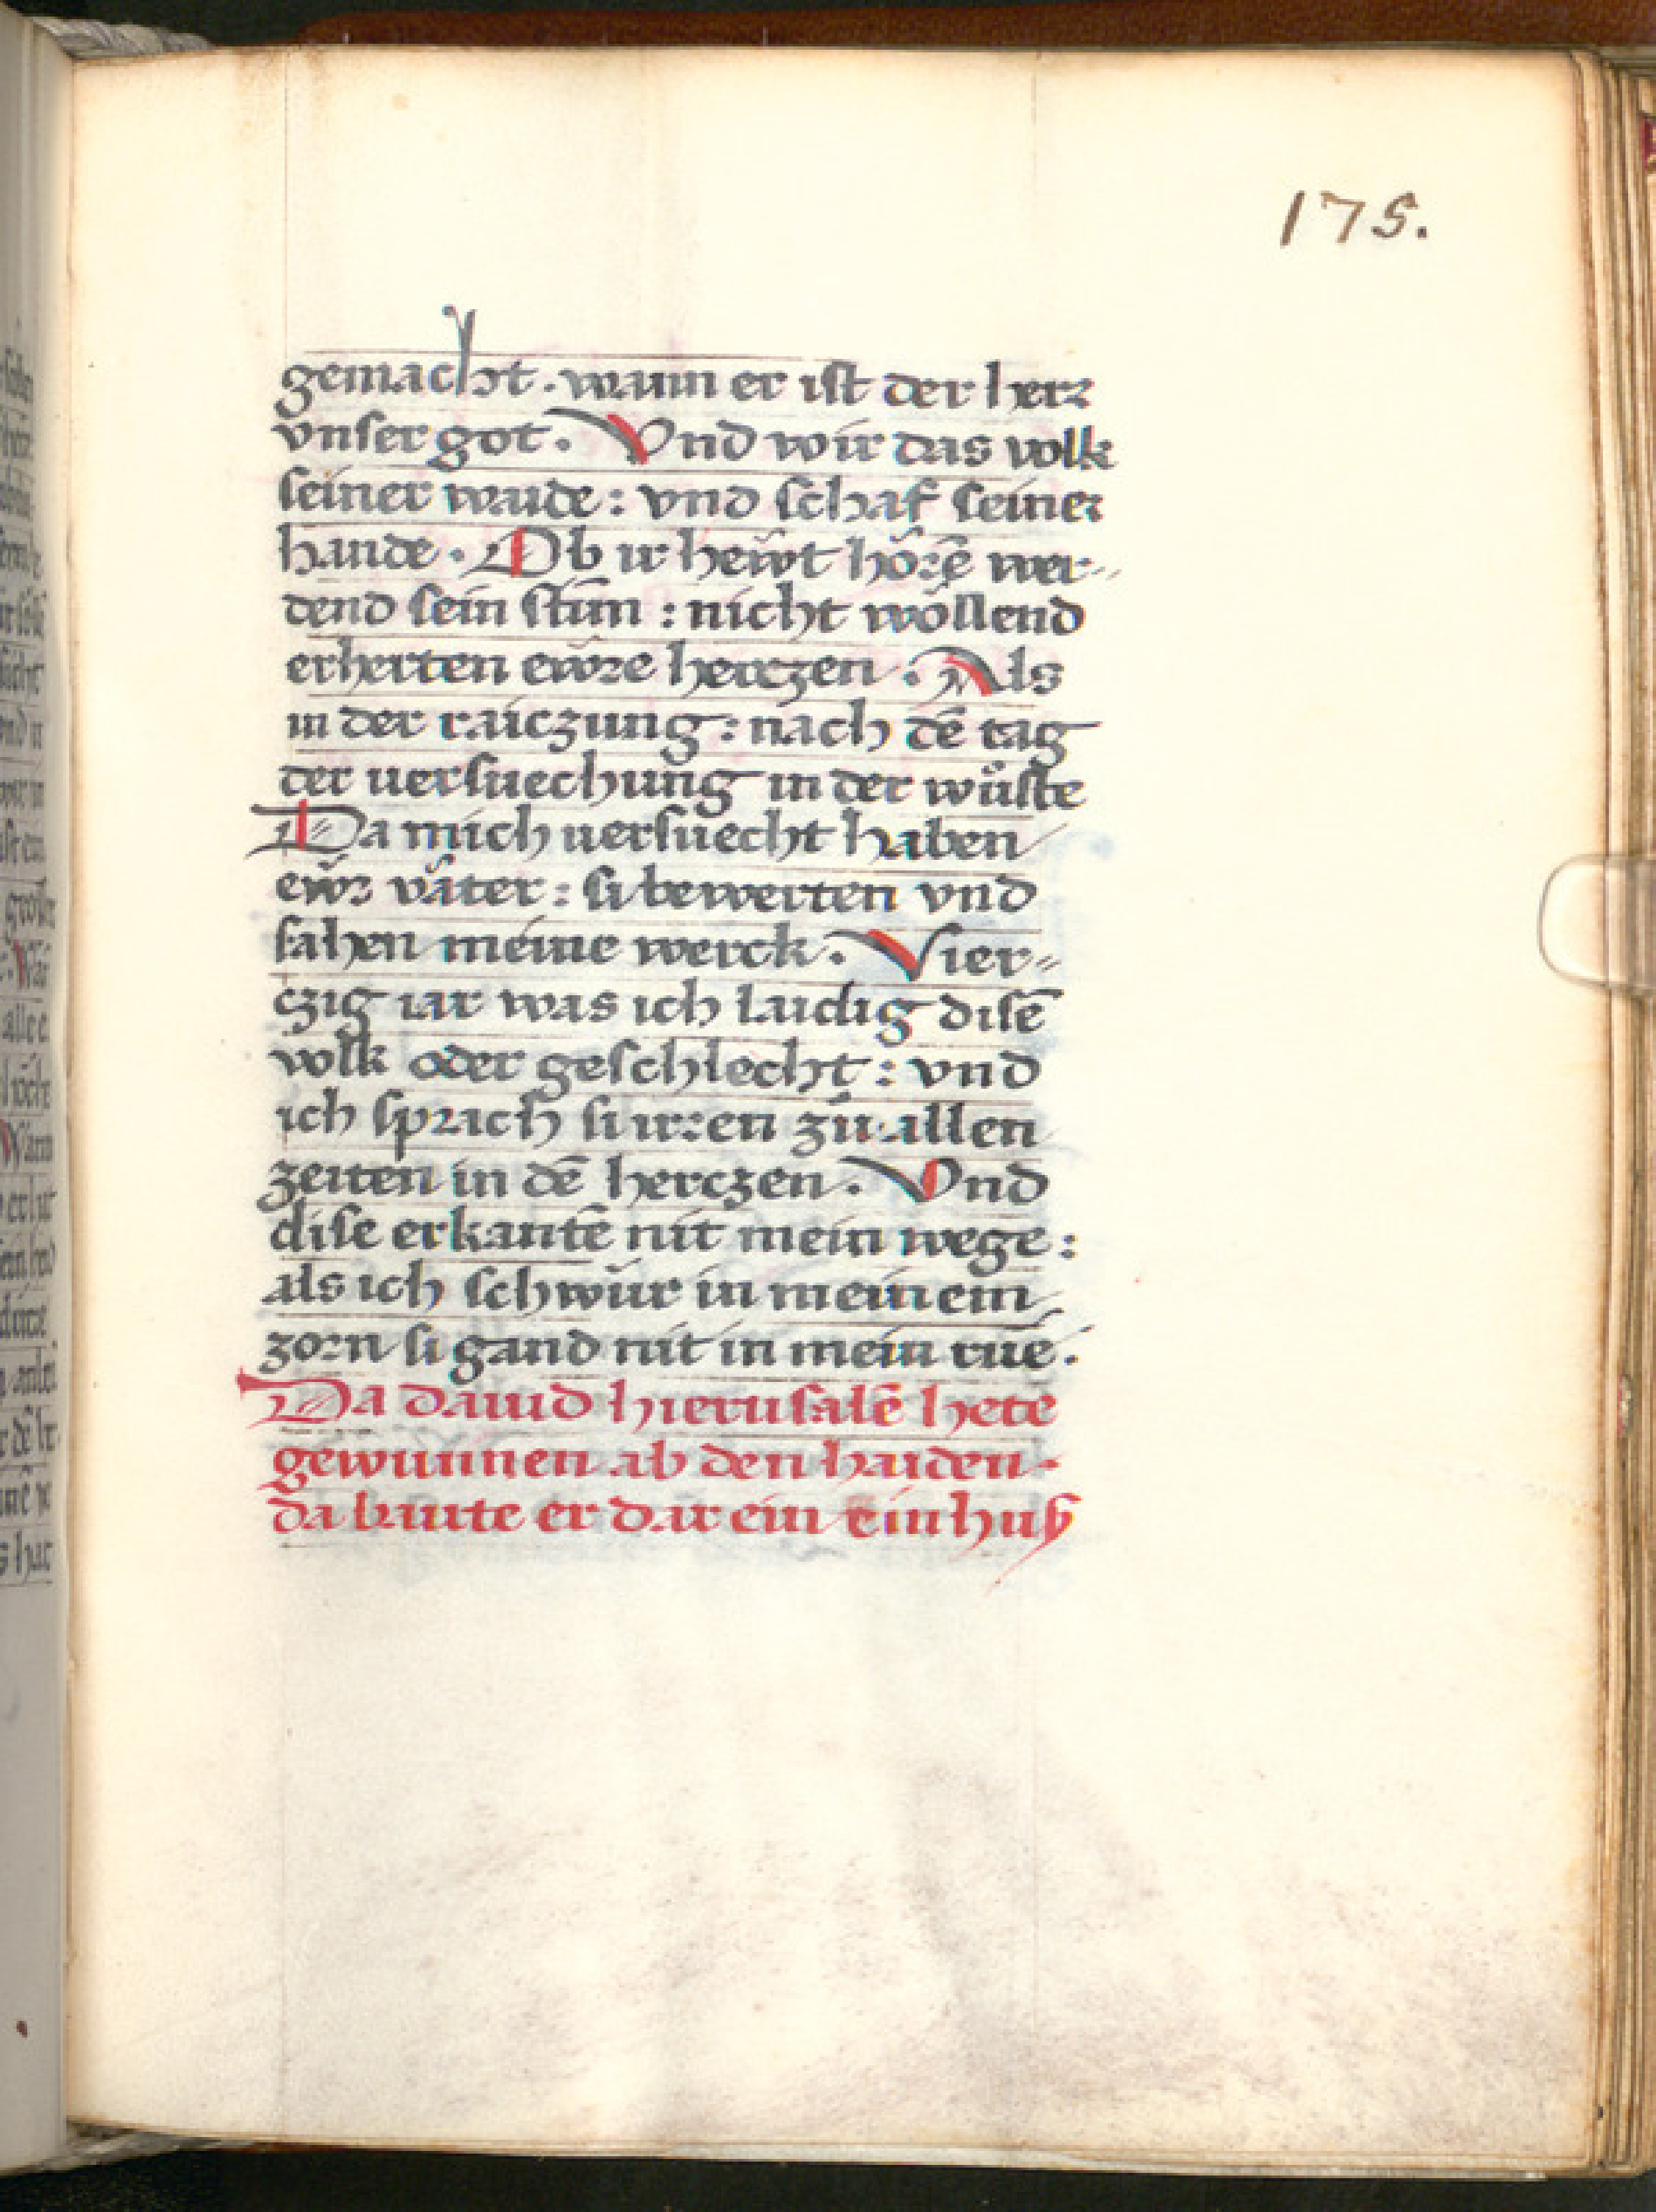 175.
gemacht. wann er ist der herr
vnser got. Vnd wir das volk
seiner waide: vnd schaf seiner
hande. Ob ir hewt hörē wer-
dend sein stim̄: nicht wöllend
erherten ewre herczen. Als
in der raiczung: nach dē tag
der versuechung in der wůste
Da mich versuecht haben
ewr väter: si bewerten vnd
sahen meine werck. Vier-
czig iar was ich laidig disē
volk oder geschlecht: vnd
ich sprach si irren zů allen
zeiten in dē herczen. Vnd
dise erkantē nit mein wege:
als ich schwůr in meinem
zorn si gand nit in mein rue.
Da dauid hierusalē hete
gewunnen ab den haiden.
da baute er dar ein ein hus